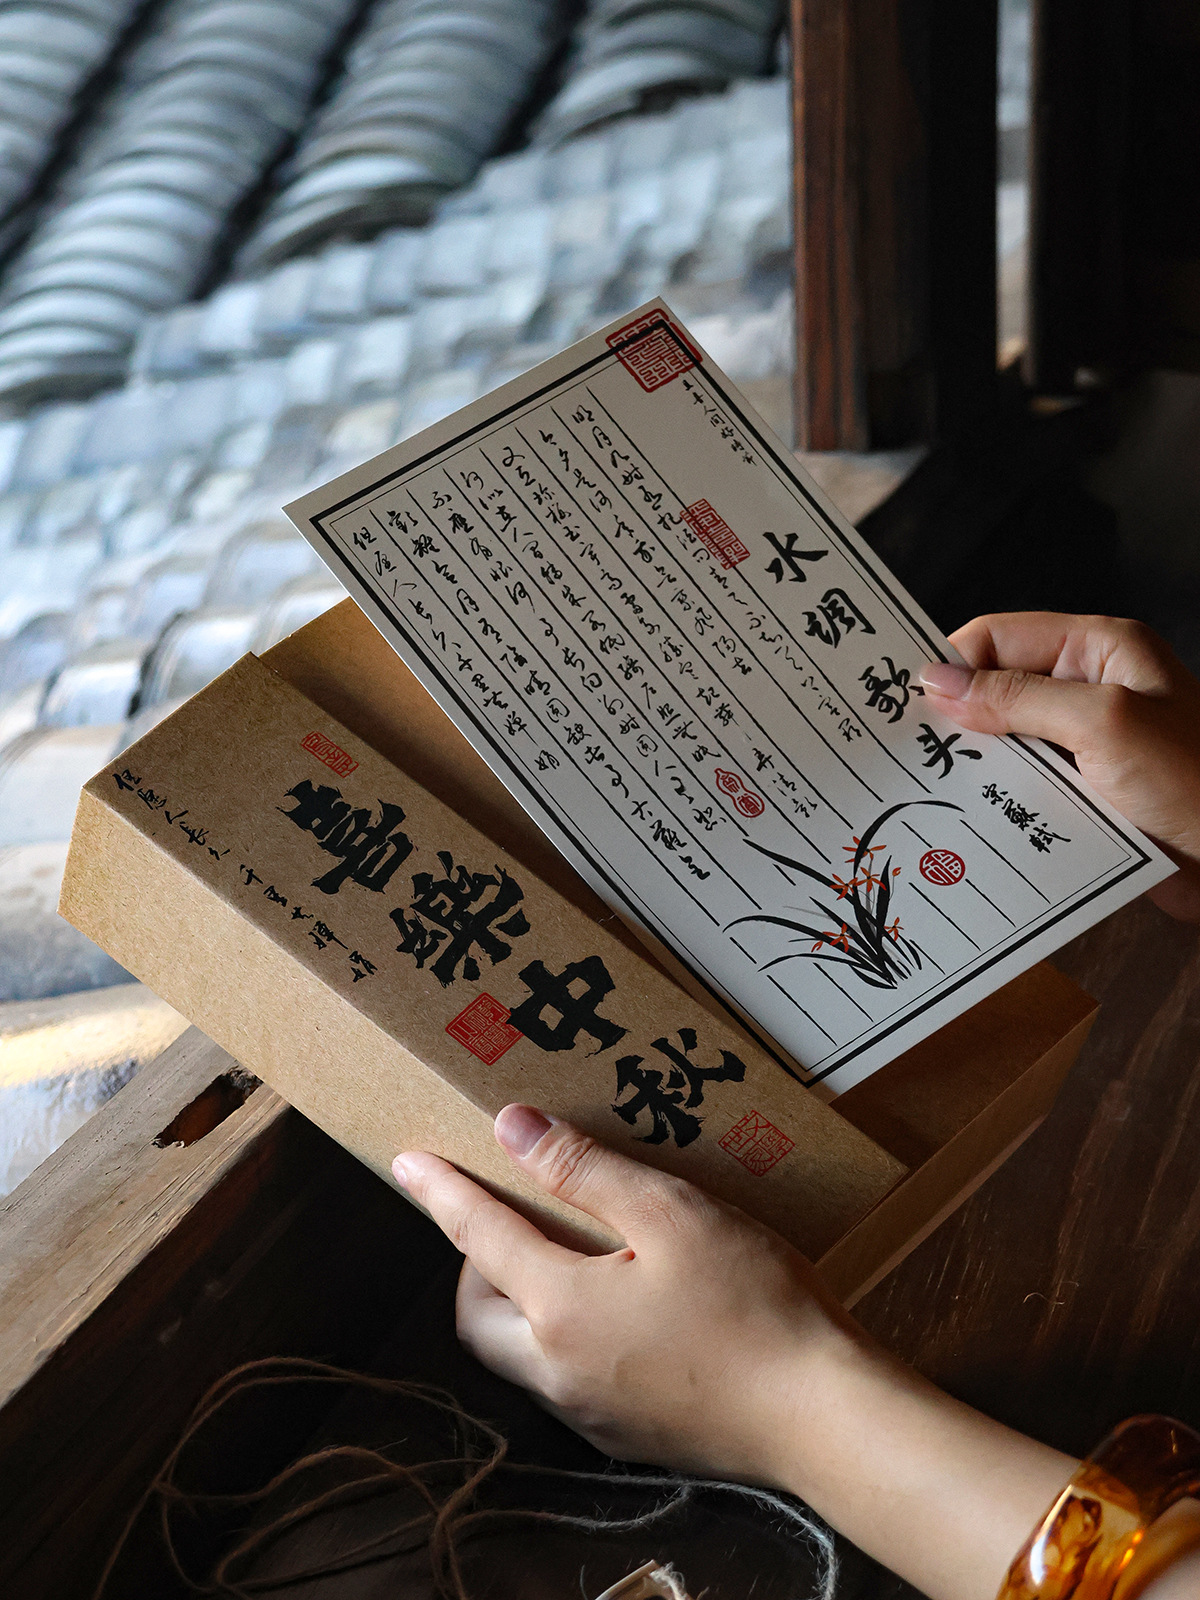 水调歌头
宋蘇軾
明月几时有把酒问青天不知天上宫阙
今夕是何年我欲乘风归去
又恐琼楼玉宇高处不胜寒起舞弄清影
何似在人间转朱阁低绮户照无眠
不应有恨何事长向别时圆人有悲
歡離合月有陰晴圆缺此事古難全
但愿人长久千里共婵娟
福
喜樂中秋
但愿人長久千里共婵娟